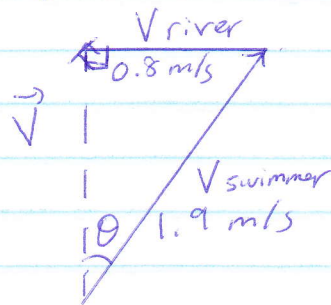 V river
0.8 m/s
V⃗
V swimmer
θ
1.9 m/s